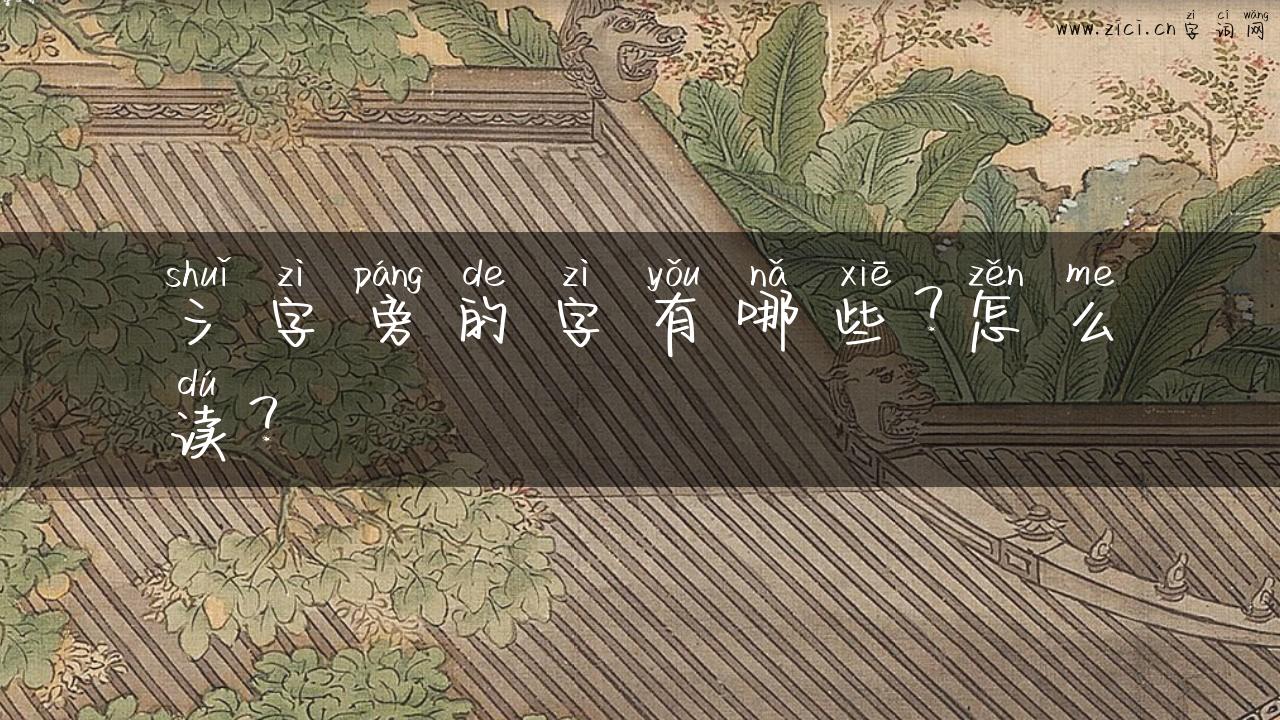 www.zici.cn zì cí wǎng
字词网
shuǐ zì páng de zì yǒu nǎ xiē zěn me
氵字旁的字有哪些？怎么
dú
读？